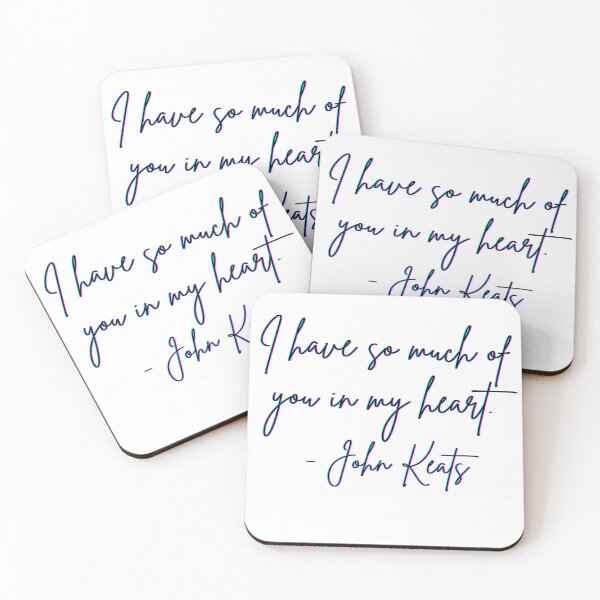 I have so much of
you in my heart
I have so much of
you in my heart.
- John Keats
I have so much of
you in my heart.
- John
I have so much of
you in my heart.
- John Keats